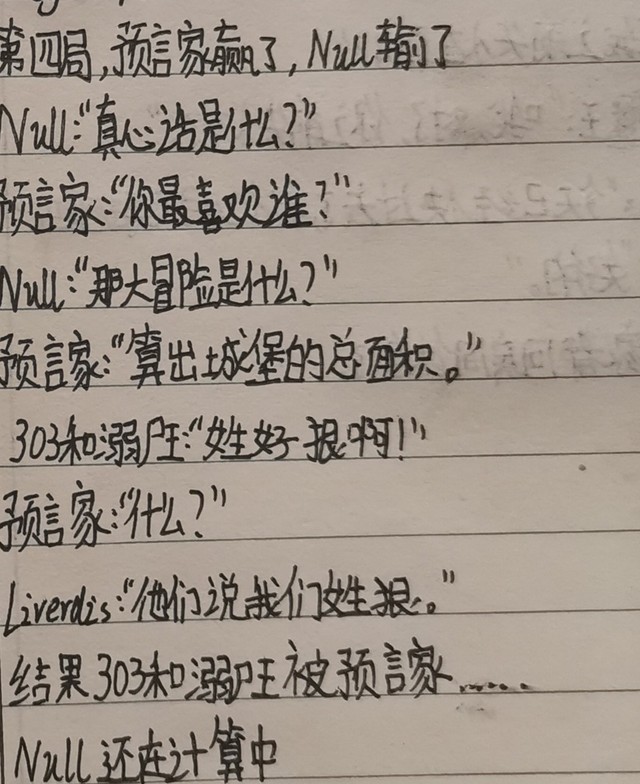 第四局,预言家赢了,Null输了
Null:“真心话是什么?”
预言家:“你最喜欢谁?”
Null:“那大冒险是什么?”
预言家:“算出城堡的总面积。”
303和溺尸王:“姓好狠啊!”
预言家:“什么?”
Liverdis:“他们说我们姓狠。”
结果303和溺尸王被预言家……
Null还在计算中